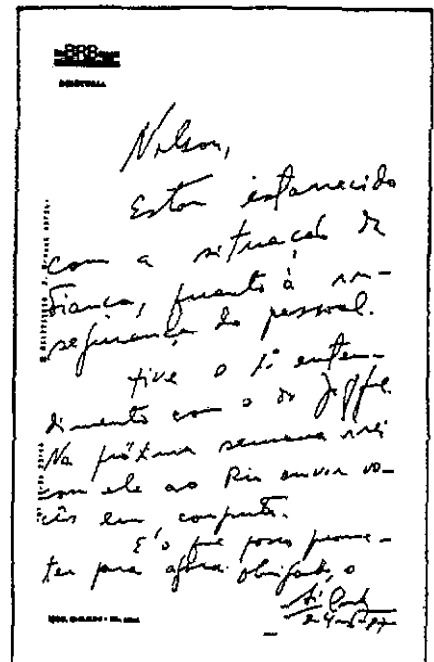 BRB
DIRETORIA
Nilson,
Estou estarrecido
com a situação de
Fiança, quanto à in-
segurança do pessoal.
Tive o 1º enten-
dimento com o Dr
Na próxima semana irei
com ele ao Rio ouvir vo-
cês em conjunto.
É o que posso prome-
ter para agora. Obrigado, o